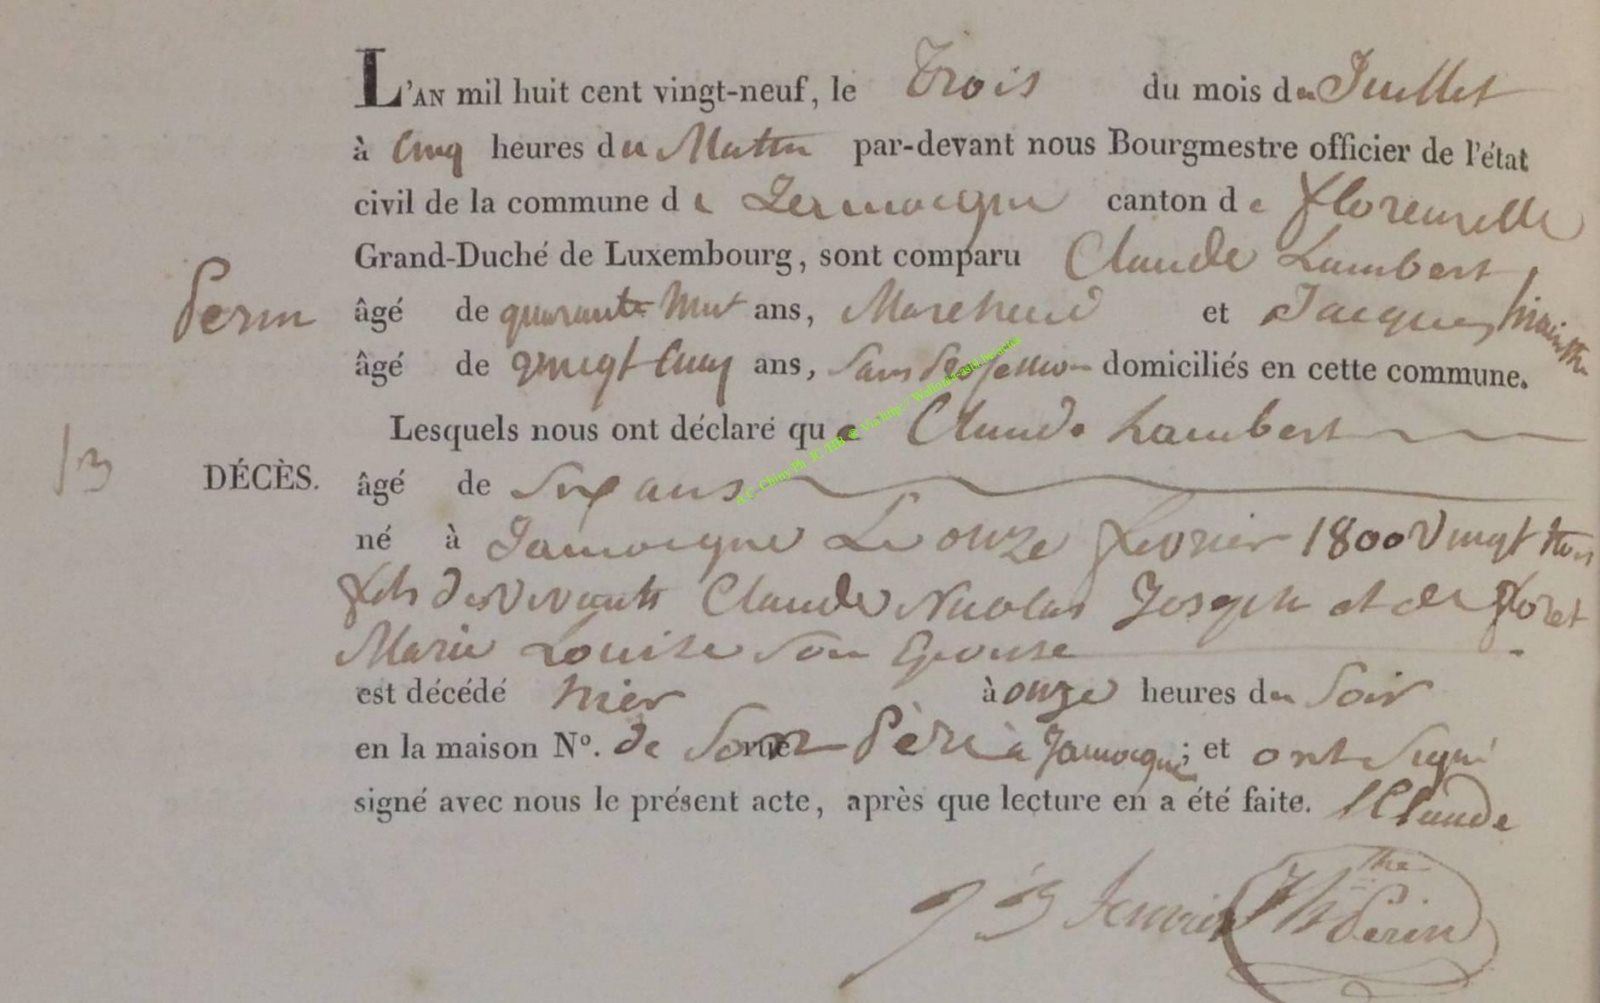 L'AN mil huit cent vingt-neuf, le Trois du mois de Juillet
à Cinq heures du Matin par-devant nous Bourgmestre officier de l'état
civil de la commune de canton de florenville
Grand-Duché de Luxembourg, sont comparu Claude Lambert
Perin âgé de quarante huit ans, Marchand et Jacques
âgé de vingt Cinq ans, Sans Profession domiciliés en cette commune.
Lesquels nous ont déclaré que Claude Lambert
13 DÉCÈS. âgé de Six ans
né à Jamoigne Le onze fevrier 1800 vingt trois
fils des vivants Claude Nicolas Joseph et de floret
Marie Louise Son Epouse
est décédé hier à onze heures du Soir
en la maison N°. de Son rue Père à Jamoigne; et ont Signé
signé avec nous le présent acte, après que lecture en a été faite. l Claude
Perin